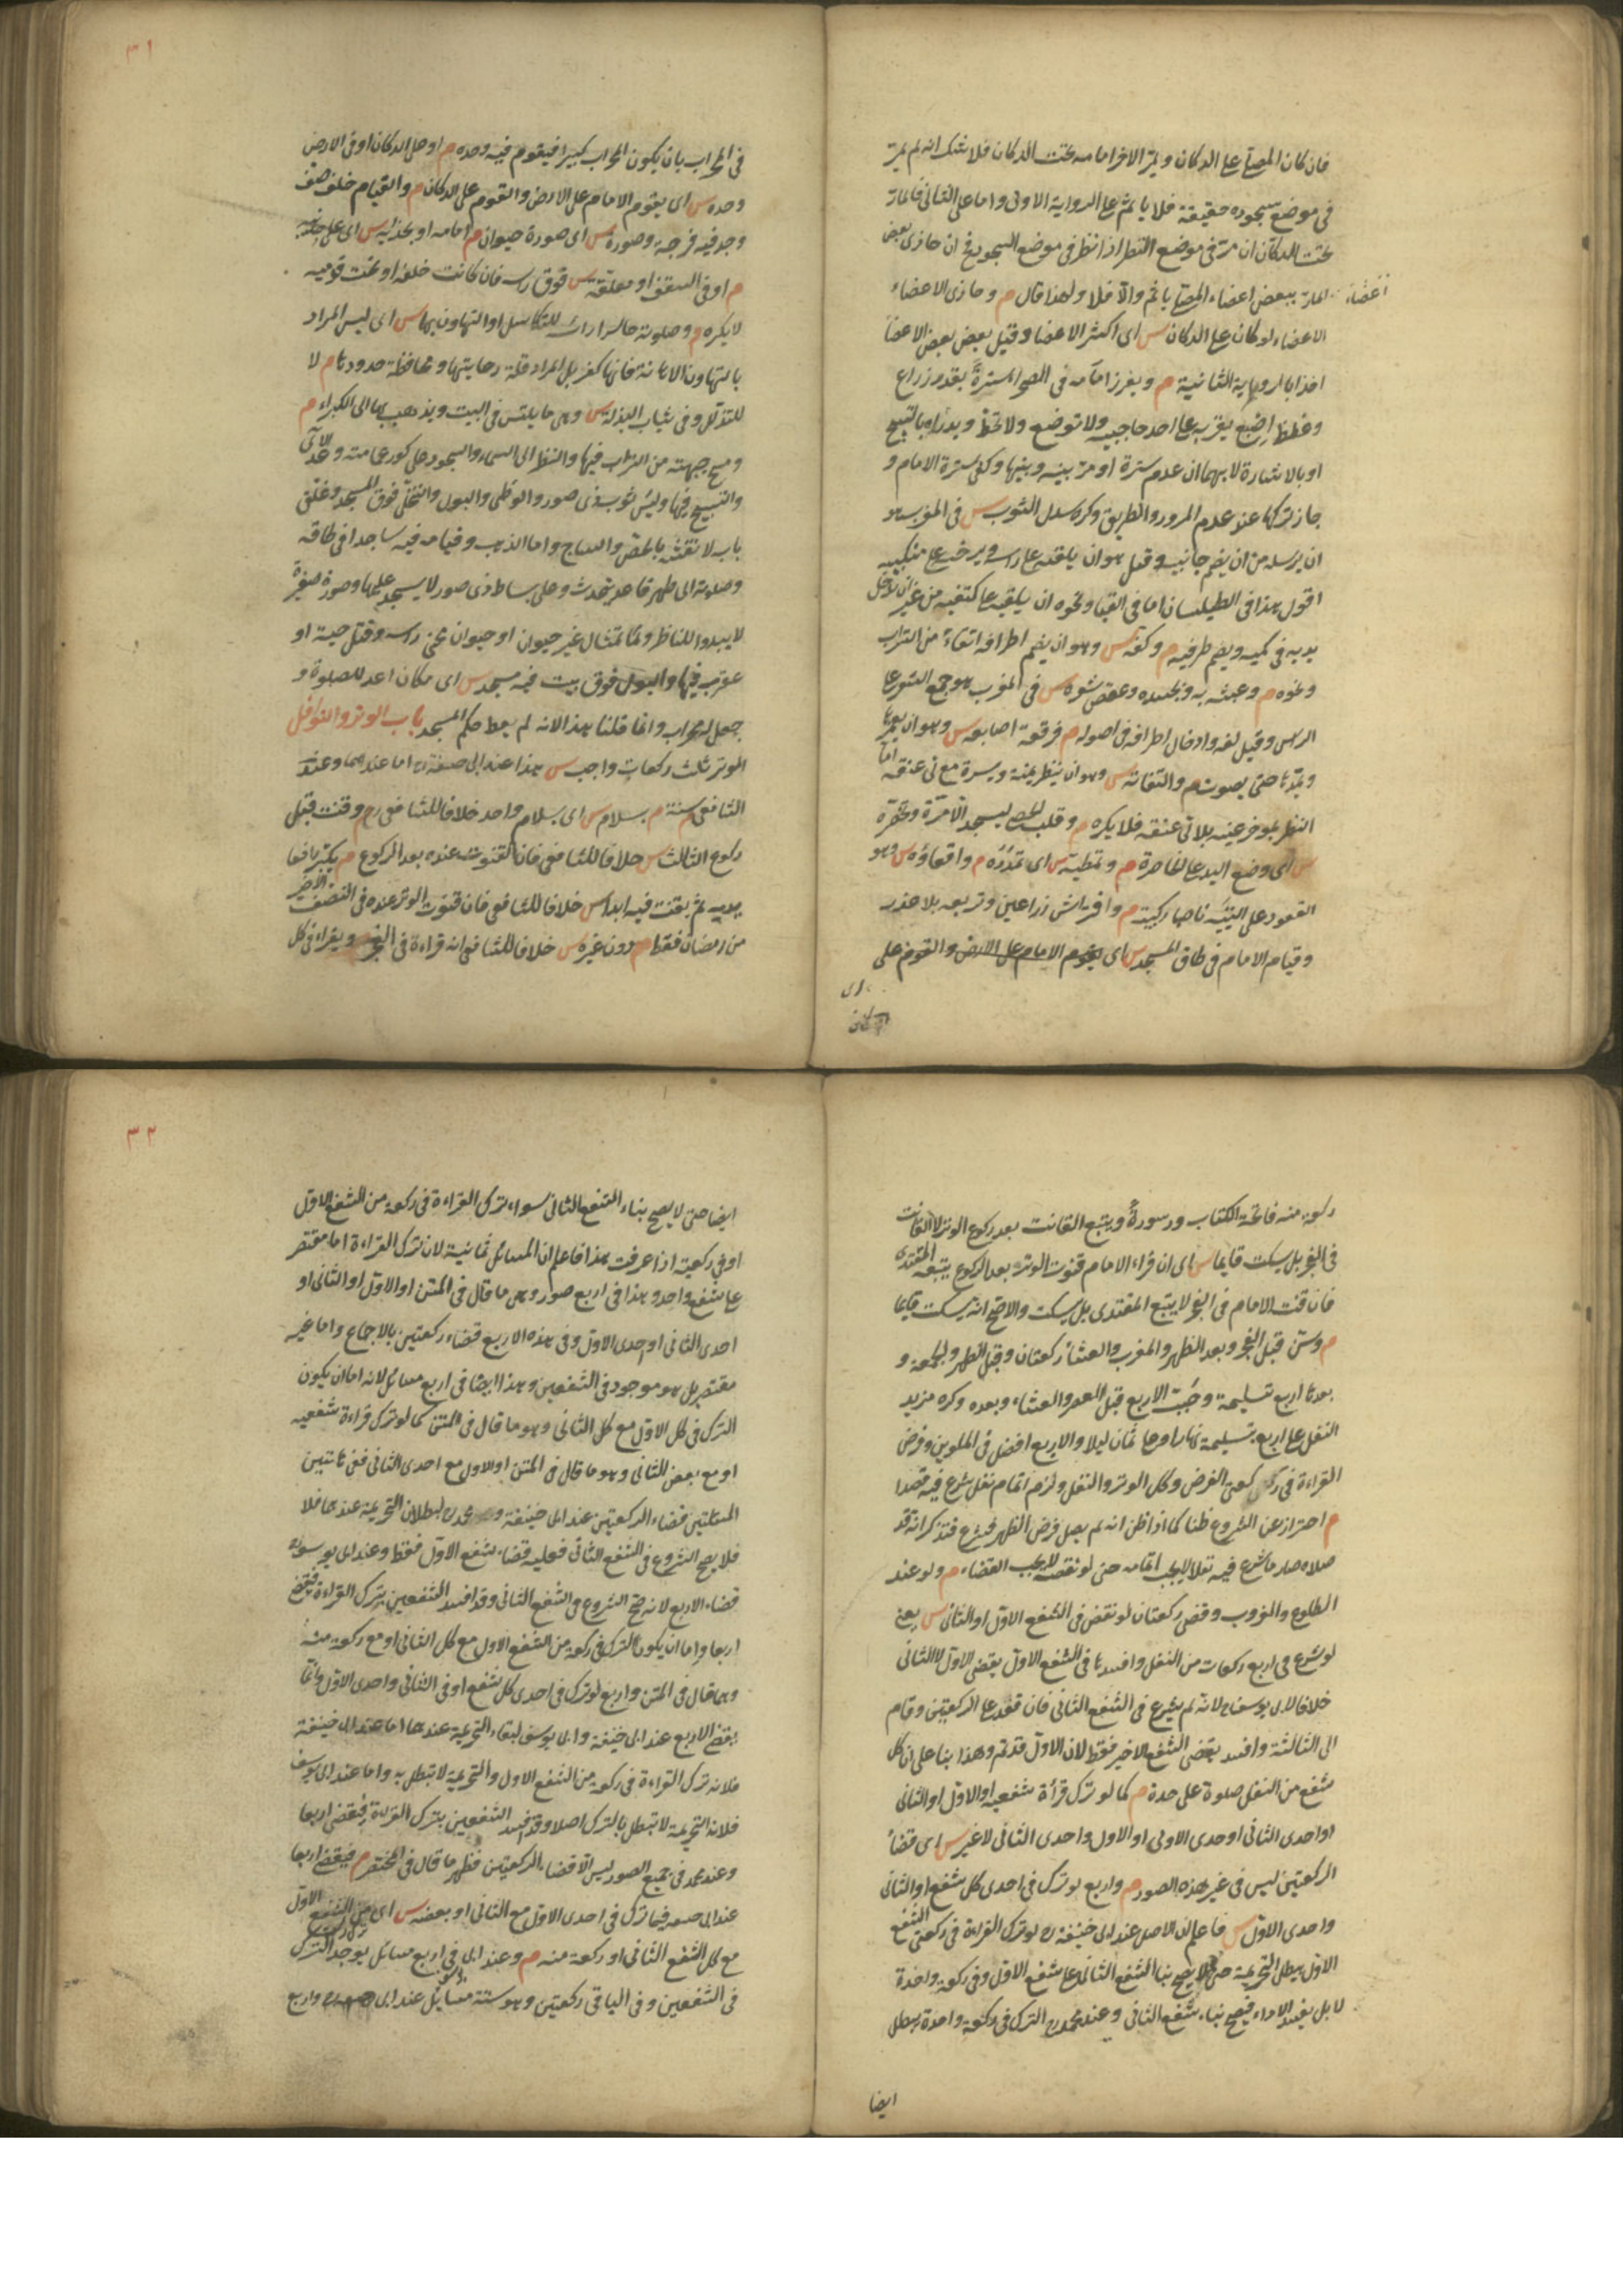 فان كان المصلى على الدكان ويمر الاخر امامه تحت الدكان فلا شك انه لم يمر
فى موضع سجوده حقيقة فلا ياثم على الرواية الاولى واما على الثانى فالمار
تحت الدكان ان مر فى موضع النظر اذا نظر فى موضع السجود فح ان حاذى بعض
اعضاء المار ببعض اعضاء المصلى ياثم والا فلا ولهذا قال م وحاذى الاعضاء
الاعضاء لو كان على الدكان س اى اكثر الاعضا وقيل بعض بعض الاعضا
اخذا بالرواية الثانية م ويغرز امامه فى الصحراء سترة بقدر ذراع
وغلظ اصبع بقرب على احد حاجبيه ولا توضع ولا تخط ويدراه بالتسبيح
او بالاشارة لا بهما ان عدم سترة او مر بينه وبينها وكفى سترة الامام و
جاز تركها عند عدم المرور والطريق وكره سدل الثوب س فى المغرب هو
ان يرسله من ان يضم جانبيه وقيل هو ان يلقيه على راسه ويرخيه على منكبيه
اقول هذا فى الطيلسان اما فى القبا ونحوه ان يلقيه على كتفيه من غير ان يدخل
يديه فى كميه ويضم طرفيه م وكفه س وهو ان يضم اطرافه اتقاء من التراب
ونحوه م وعبثه به وبجسده وعقص شعره س فى المغرب هو جمع الشعر على
الراس وقيل لفه وادخال اطرافه فى اصوله م فرقعة اصابعه س وهو ان يغمزها
ويمدها حتى يصوت م والتفاته س وهو ان ينظر يمنة ويسرة مع لى عنقه اما
النظر بموخر عينه بلا لى عنقه فلا يكره م وقلب الحصى ليسجد الا مرة وتخصره
س اى وضع اليد على الخاصرة م وتمطيه س اى تمدده م واقعاؤه س وهو
القعود على اليتيه ناصبا ركبتيه م وافتراش ذراعيه وتربعه بلا عذر
وقيام الامام فى طاق المسجد س اى يقوم الامام على الارض والقوم على
٣١
فى المحراب بان يكون المحراب كبيرا فيقوم فيه وحده م او على الدكان او فى الارض
وحده س اى يقوم الامام على الارض والقوم على الدكان م والقيام خلف صف
وجد فيه فرجة وصورة س اى صورة حيوان م امامه او بحذائه س اى على جنبه
م او فى السقف او معلقة س فوق راسه فان كانت خلفه او تحت قدميه
لا يكره م وصلوته حاسرا راسه للتكاسل او التهاون بها س اى ليس المراد
بالتهاون الاهانة فانها كفر بل المراد قلة رعايتها ومحافظة حدودها م لا
للتذلل وفى ثياب البذلة س وهى ما يلبس فى البيت ويذهب بها الى الكبراء م
ومسح جبهته من التراب فيها والنظر الى السماء والسجود على كور عمامته وعد الآى
والتسبيح فيها ولبس ثوب ذى صور والوطى والبول والتخلى فوق المسجد وغلق
باب لا نقشه بالجص والساج وماء الذهب وقيامه فيه ساجدا فى طاقه
وصلوته الى ظهر قاعد يتحدث وعلى بساط ذى صور لا يسجد عليها وصورة صغيرة
لا يبدو للناظر وتمثال غير حيوان او حيوان محى راسه وقتل حية او
عقرب فيها والبول فوق بيت فيه مسجد س اى مكان اعد للصلوة و
جعل له محراب وانما قلنا هذا لانه لم يعط حكم المسجد باب الوتر والنوافل
الوتر ثلث ركعات واجب س هذا عند ابى حنيفة رح اما عندهما وعند
الشافعى سنة م بسلام س اى بسلام واحد خلافا للشافعى رح م وقنت قبل
ركوع الثالث س خلافا للشافعى فان القنوت عنده بعد الركوع م يكبر رافعا
يديه ثم يقنت فيه ابدا س خلافا للشافعى فان قنوت الوتر عنده فى النصف الاخير
من رمضان فقط م دون غيره س خلافا للشافعى انه قراءة فى الفجر م ويقراء فى كل
ركعة منه فاتحة الكتاب وسورة ويتبع القانت بعد ركوع الوتر لا القانت
فى الفجر بل يسكت قائما س اى ان قراء الامام قنوت الوتر بعد الركوع يتبعه المقتدى
فان قنت الامام فى الفجر لا يتبع المقتدى بل يسكت والاصح انه يسكت قائما
م وسن قبل الفجر وبعد الظهر والمغرب والعشا ركعتان وقبل الظهر والجمعة و
بعدها اربع تسليمة وحبب الاربع قبل العصر والعشاء وبعده وكره مزيد
النفل على اربع بتسليمة نهارا وعلى ثمان ليلا والاربع افضل فى الملوين وفرض
القراءة فى ركعتى الفرض وكل الوتر والنفل ولزم اتمام نفل شرع فيه قصدا
م احتراز عن الشروع ظنا كما اذا ظن انه لم يصل فرض الظهر فشرع فتذكر انه قد
صلاه صار ما شرع فيه نفلا لا يجب اتمامه حتى لو نقضه لا يجب القضاء م ولو عند
الطلوع والغروب وقضى ركعتان لو نقض فى الشفع الاول او الثانى س يعنى
لو شرع فى اربع ركعات من النفل وافسدها فى الشفع الاول يقضى الاول لا الثانى
خلافا لابى يوسف رح لانه لم يشرع فى الشفع الثانى فان قعد على الركعتين وقام
الى الثالثة وافسد يقضى الشفع الاخير فقط لان الاول قد تم وهذا بنا على ان كل
شفع من النفل صلوة على حدة م كما لو ترك قرأة شفعيه او الاول او الثانى
او احدى الثانى او احدى الاولى او الاول واحدى الثانى لا غير س اى قضاء
الركعتين ليس فى غير هذه الصور م واربع لو ترك فى احدى كل شفع او الثانى
واحدى الاول س فاعلم ان الاصل عند ابى حنيفة رح لو ترك القراءة فى ركعتى الشفع
الاول يبطل التحريمة حتى لا يصح بنا الشفع الثانى على شفع الاول وفى ركعة واحدة
لا بل يفسد الاداء فيصح بناء شفع الثانى وعند محمد رح الترك فى ركعة واحدة يبطل
ايضا
٣٢
ايضا حتى لا يصح بناء الشفع الثانى سواء ترك القراءة فى ركعة من الشفع الاول
او فى ركعتيه اذا عرفت هذا فاعلم ان المسائل ثمانية لان ترك القراءة اما مقتصر
على شفع واحد وهذا فى اربع صور وهى ما قال فى المتن او الاول او الثانى او
احدى الثانى او احدى الاول وفى هذه الاربع قضاء ركعتين بالاجماع واما غير
مقتصر بل هو موجود فى الشفعين وهذا ايضا فى اربع مسائل لانه اما ان يكون
الترك فى كل الاول مع كل الثانى وهو ما قال فى المتن كما لو ترك قراءة شفعيه
او مع بعض الثانى وهو ما قال فى المتن او الاول مع احدى الثانى ففى هاتين
المسئلتين قضاء الركعتين عند ابى حنيفة ومحمد رح لبطلان التحريمة عندهما فلا
فلا يصح الشروع فى الشفع الثانى فعليه قضاء شفع الاول فقط وعند ابى يوسف
قضاء الاربع لانه صح الشروع فى الشفع الثانى وقد افسد الشفعين بترك القراءة فيقضى
اربعا واما ان يكون الترك فى ركعة من الشفع الاول مع كل الثانى او مع ركعة منه
وهما قال فى المتن واربع لو ترك فى احدى كل شفع او فى الثانى واحدى الاول وانما
يقضى الاربع عند ابى حنيفة وابى يوسف لبقاء التحريمة عندهما اما عند ابى حنيفة
فلانه ترك القراءة فى ركعة من الشفع الاول والتحريمة لا تبطل به واما عند ابى يوسف
فلان التحريمة لا تبطل بالترك اصلا وقد افسد الشفعين بترك القراءة فيقضى اربعا
وعند محمد فى جميع الصور ليس الا قضاء الركعتين فظهر ما قال فى المختصر م فيقضى اربعا
عند ابى حنيفة فيما ترك فى احدى الاول مع الثانى او بعضه س اى من الشفع الاول
مع كل الشفع الثانى او ركعة منه م وعند ابى يوسف فى اربع مسائل يوجد الترك
فى الشفعين وفى الباقى ركعتين وهو ستة مسائل عند ابى حنيفة رح واربع